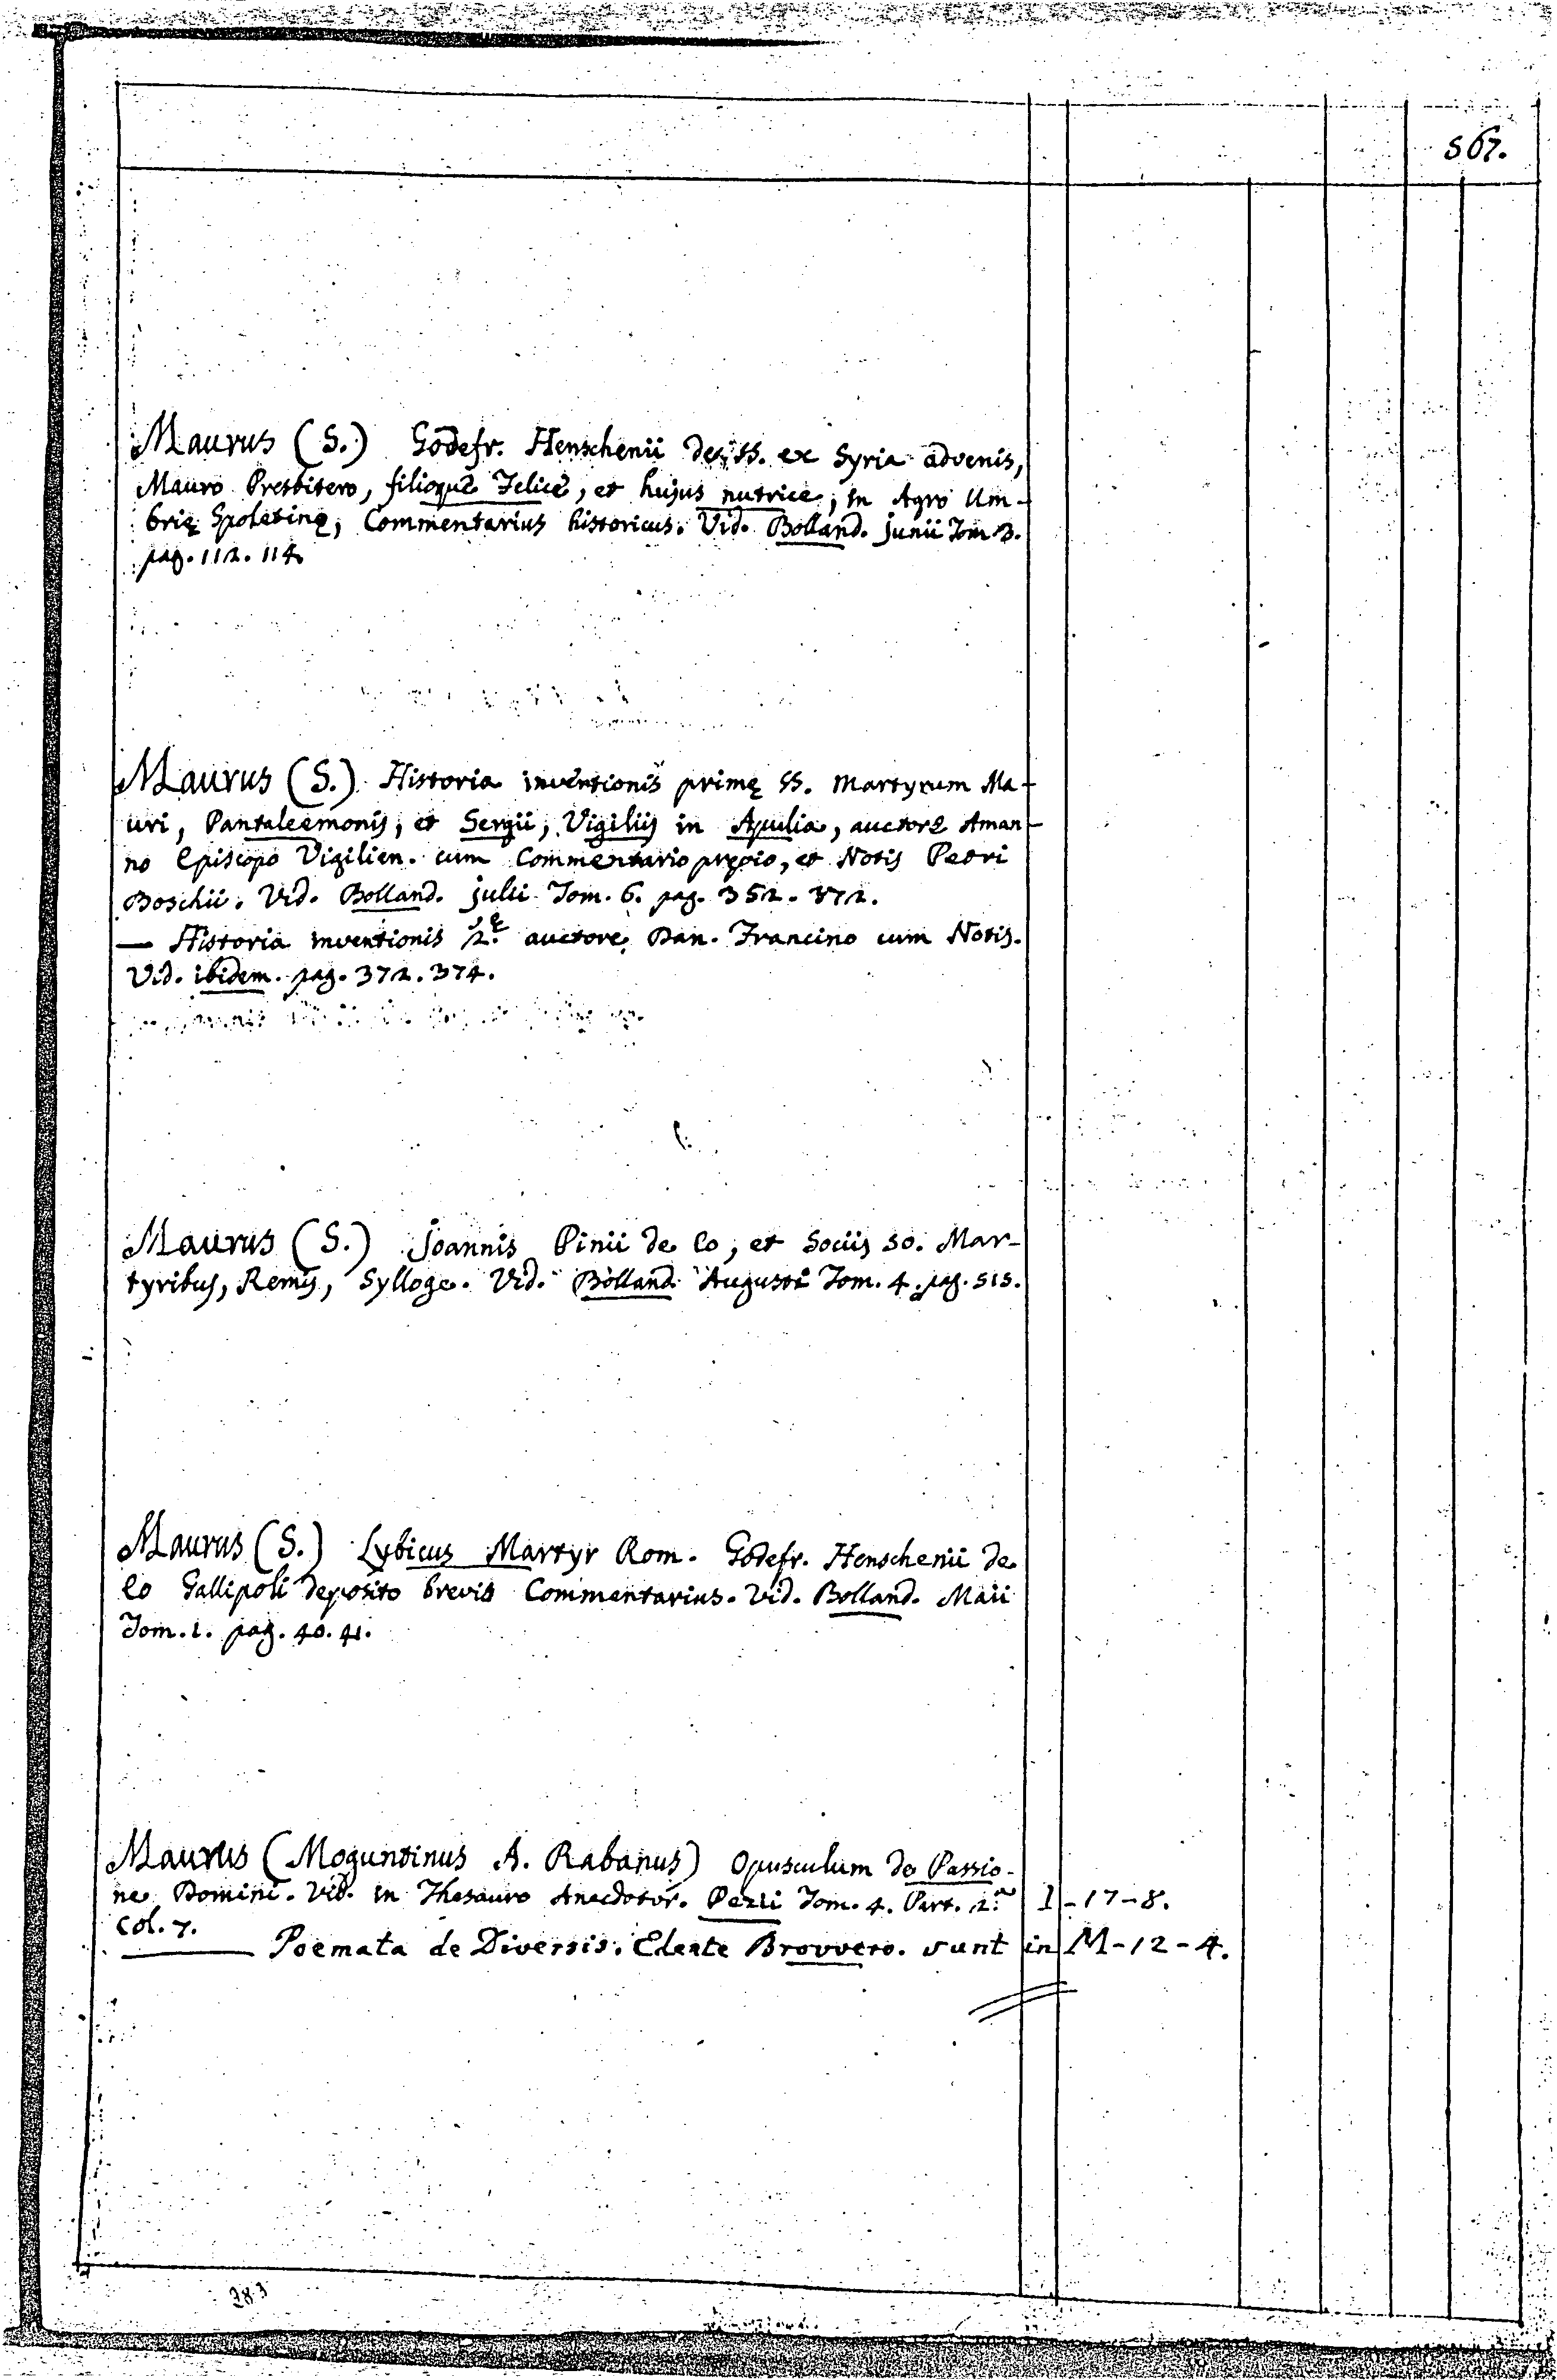 567.
Maurus (S.) Godefr. Henschenii de SS. ex Syria advenis,
Mauro Presbitero, filioque Felice, et hujus nutrice, in Agro Um-
brię Spoletinę, Commentarius historicus. Vid. Bolland. Junii Tom. 3.
pag. 112. 114.
Maurus (S.) Historia inventionis primę SS. Martyrum Ma-
uri, Pantaleemonis, et Sergii, Vigiliis in Apulia, auctore Aman-
no Episcopo Vigilien. cum Commentario pręvio, et Notis Petri
Boschii. Vid. Bolland. Julii Tom. 6. pag. 352. 372.
— Historia inventionis 2.ę auctore Dan. Francino cum Notis.
Vid. ibidem. pag. 372. 374.
Maurus (S.) Joannis Pinii de Eo, et Sociis 50. Mar-
tyribus, Remis, Sylloge. Vid. Bolland. Augusti Tom. 4. pag. 515.
Maurus (S.) Lybicus Martyr Rom. Godefr. Henschenii de
Eo Gallipoli deposito brevis Commentarius. Vid. Bolland. Maii
Tom. 1. pag. 40. 41.
Maurus (Moguntinus A. Rabanus) Opusculum de Passio-
ne Domini. Vid. in Thesauro Anecdotor. Pezii Tom. 4. Part. 2.a I-17-8.
Col. 7.
— Poemata de Diversis. Edente Brovvero. sunt in M-12-4.
283